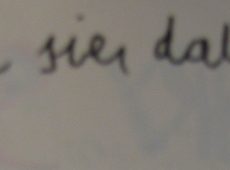 sie, dal